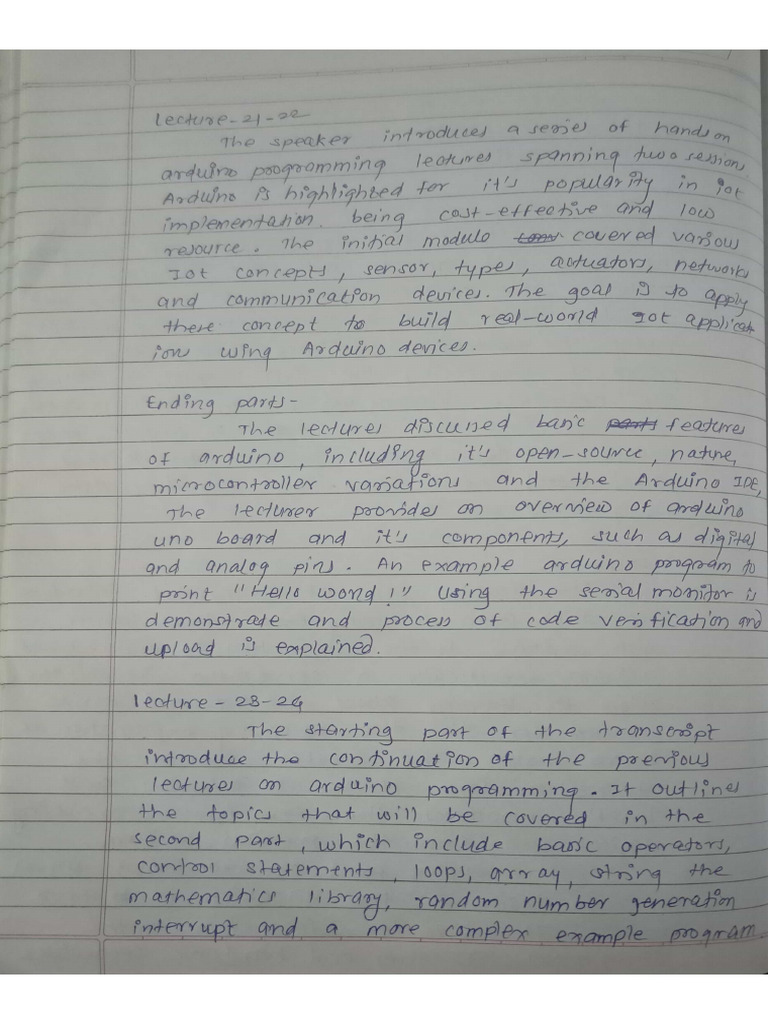 Lecture-21-22
The speaker introduces a series of hands on
arduino programming lectures spanning two session.
Arduino is highlighted for it's popularity in iot
implementation. being cost-effective and low
resource. The initial modulo covered various
Iot concepts, sensor, types, actuators, networks
and communication devices. The goal is to apply
these concept to build real-world Iot applicat
ion using Arduino devices.
Ending parts-
The lectures discussed basic parts features
of arduino, including it's open-source, nature,
microcontroller variations and the Arduino IDE,
The lecturer provides an overview of arduino
uno board and it's components, such as digital
and analog pins. An example arduino program to
print "Hello world!" using the serial monitor is
demonstrate and process of code verification and
upload is explained.
Lecture - 23-24
The starting part of the transcript
introduce the continuation of the previous
lectures on arduino programming. It outlines
the topics that will be covered in the
second part, which include basic operators,
control statements, loops, array, string the
mathematics library, random number generation
interrupt and a more complex example program.